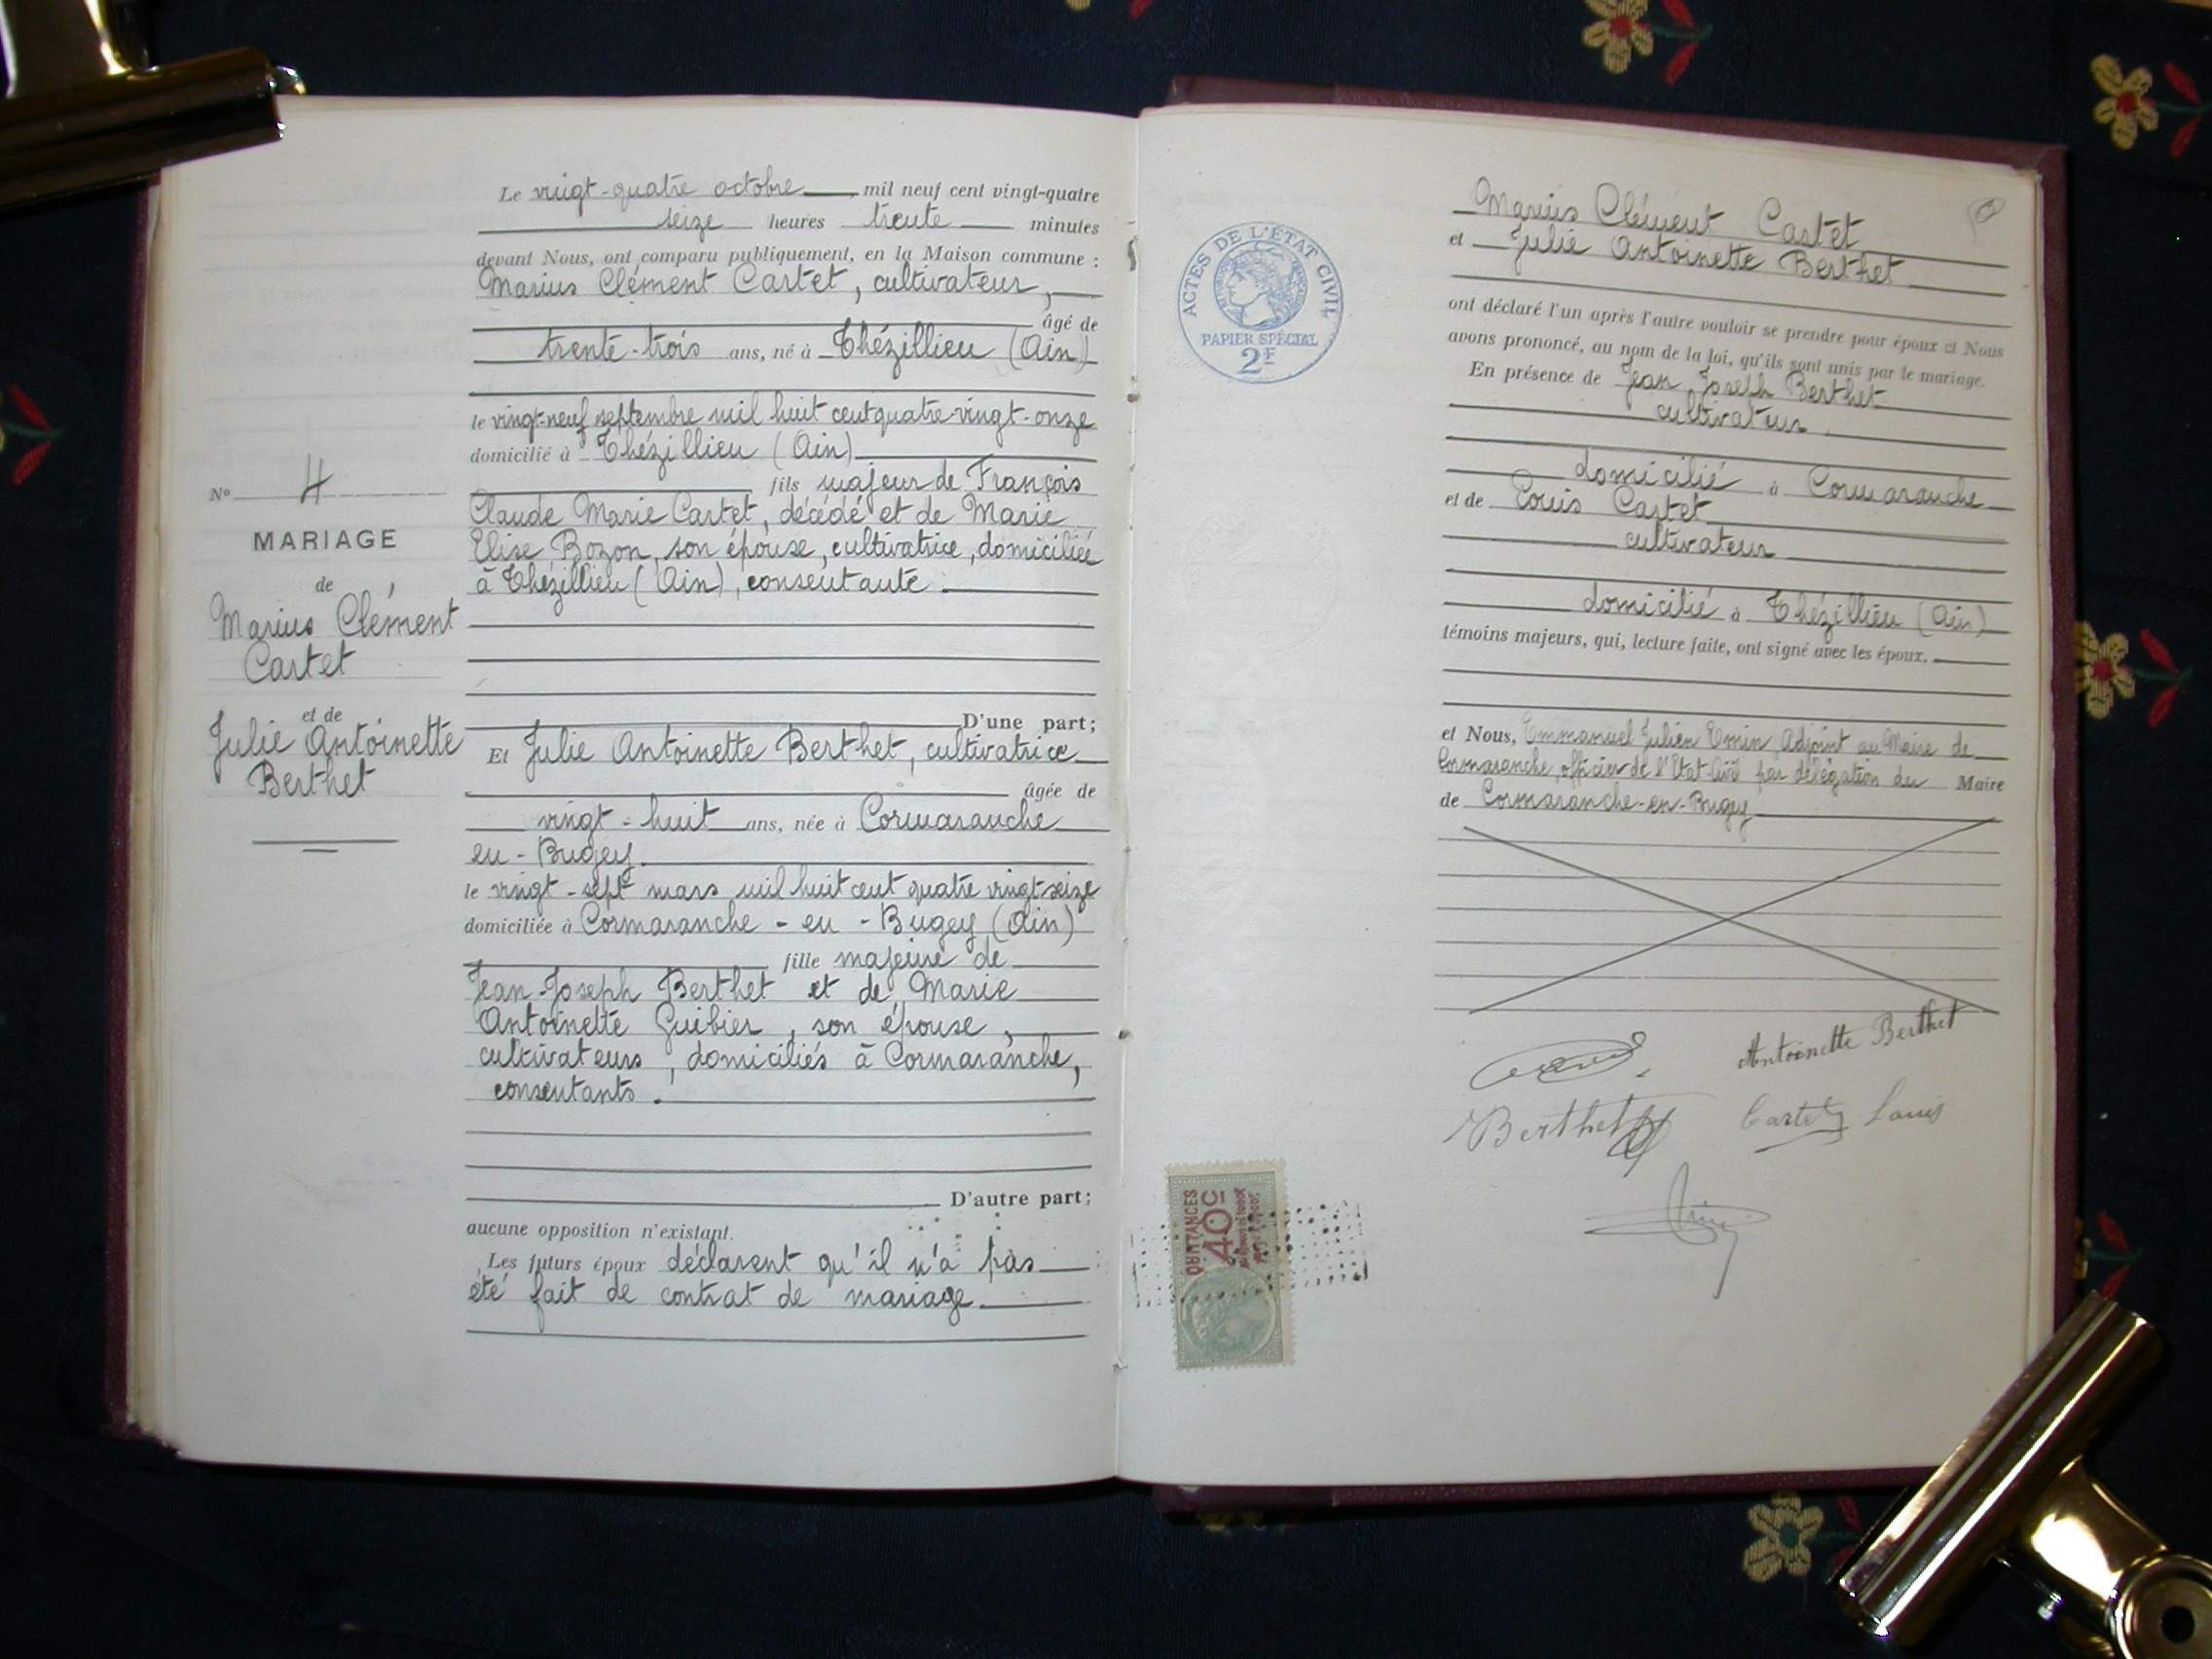 Le vingt-quatre octobre mil neuf cent vingt-quatre
seize heures trente minutes
devant Nous, ont comparu publiquement, en la Maison commune :
Marius Clément Cartet, cultivateur,
âgé de
trente-trois ans, né à Thézillieu (Ain)
le vingt-neuf septembre mil huit cent quatre-vingt-onze
domicilié à Thézillieu (Ain)
fils majeur de François
Claude Marie Cartet, décédé et de Marie
Elise Bozon, son épouse, cultivatrice, domiciliée
à Thézillieu (Ain), consentante.
D'une part;
Et Julie Antoinette Berthet, cultivatrice
âgée de
vingt-huit ans, née à Cormaranche
en-Bugey.
le vingt-sept mars mil huit cent quatre vingt seize
domiciliée à Cormaranche-en-Bugey (Ain)
fille majeure de
Jean-Joseph Berthet et de Marie
Antoinette Guibier, son épouse,
cultivateurs, domiciliés à Cormaranche,
consentants.
D'autre part;
aucune opposition n'existant.
Les futurs époux déclarent qu'il n'a pas
été fait de contrat de mariage.
No 4
MARIAGE
de
Marius Clément
Cartet
et de
Julie Antoinette
Berthet
ACTES DE L'ÉTAT CIVIL
PAPIER SPÉCIAL
2F
QUITTANCES
40c
Marius Clément Cartet
et Julie Antoinette Berthet
ont déclaré l'un après l'autre vouloir se prendre pour époux et Nous
avons prononcé, au nom de la loi, qu'ils sont unis par le mariage.
En présence de Jean Joseph Berthet
cultivateur
domicilié à Cormaranche
et de Louis Cartet
cultivateur
domicilié à Thézillieu (Ain)
témoins majeurs, qui, lecture faite, ont signé avec les époux,
et Nous, Emmanuel Julien Emin, Adjoint au Maire de
Cormaranche, officier de l'Etat-Civil par délégation du Maire
de Cormaranche-en-Bugey
Antoinette Berthet
Berthet
Cartet Louis